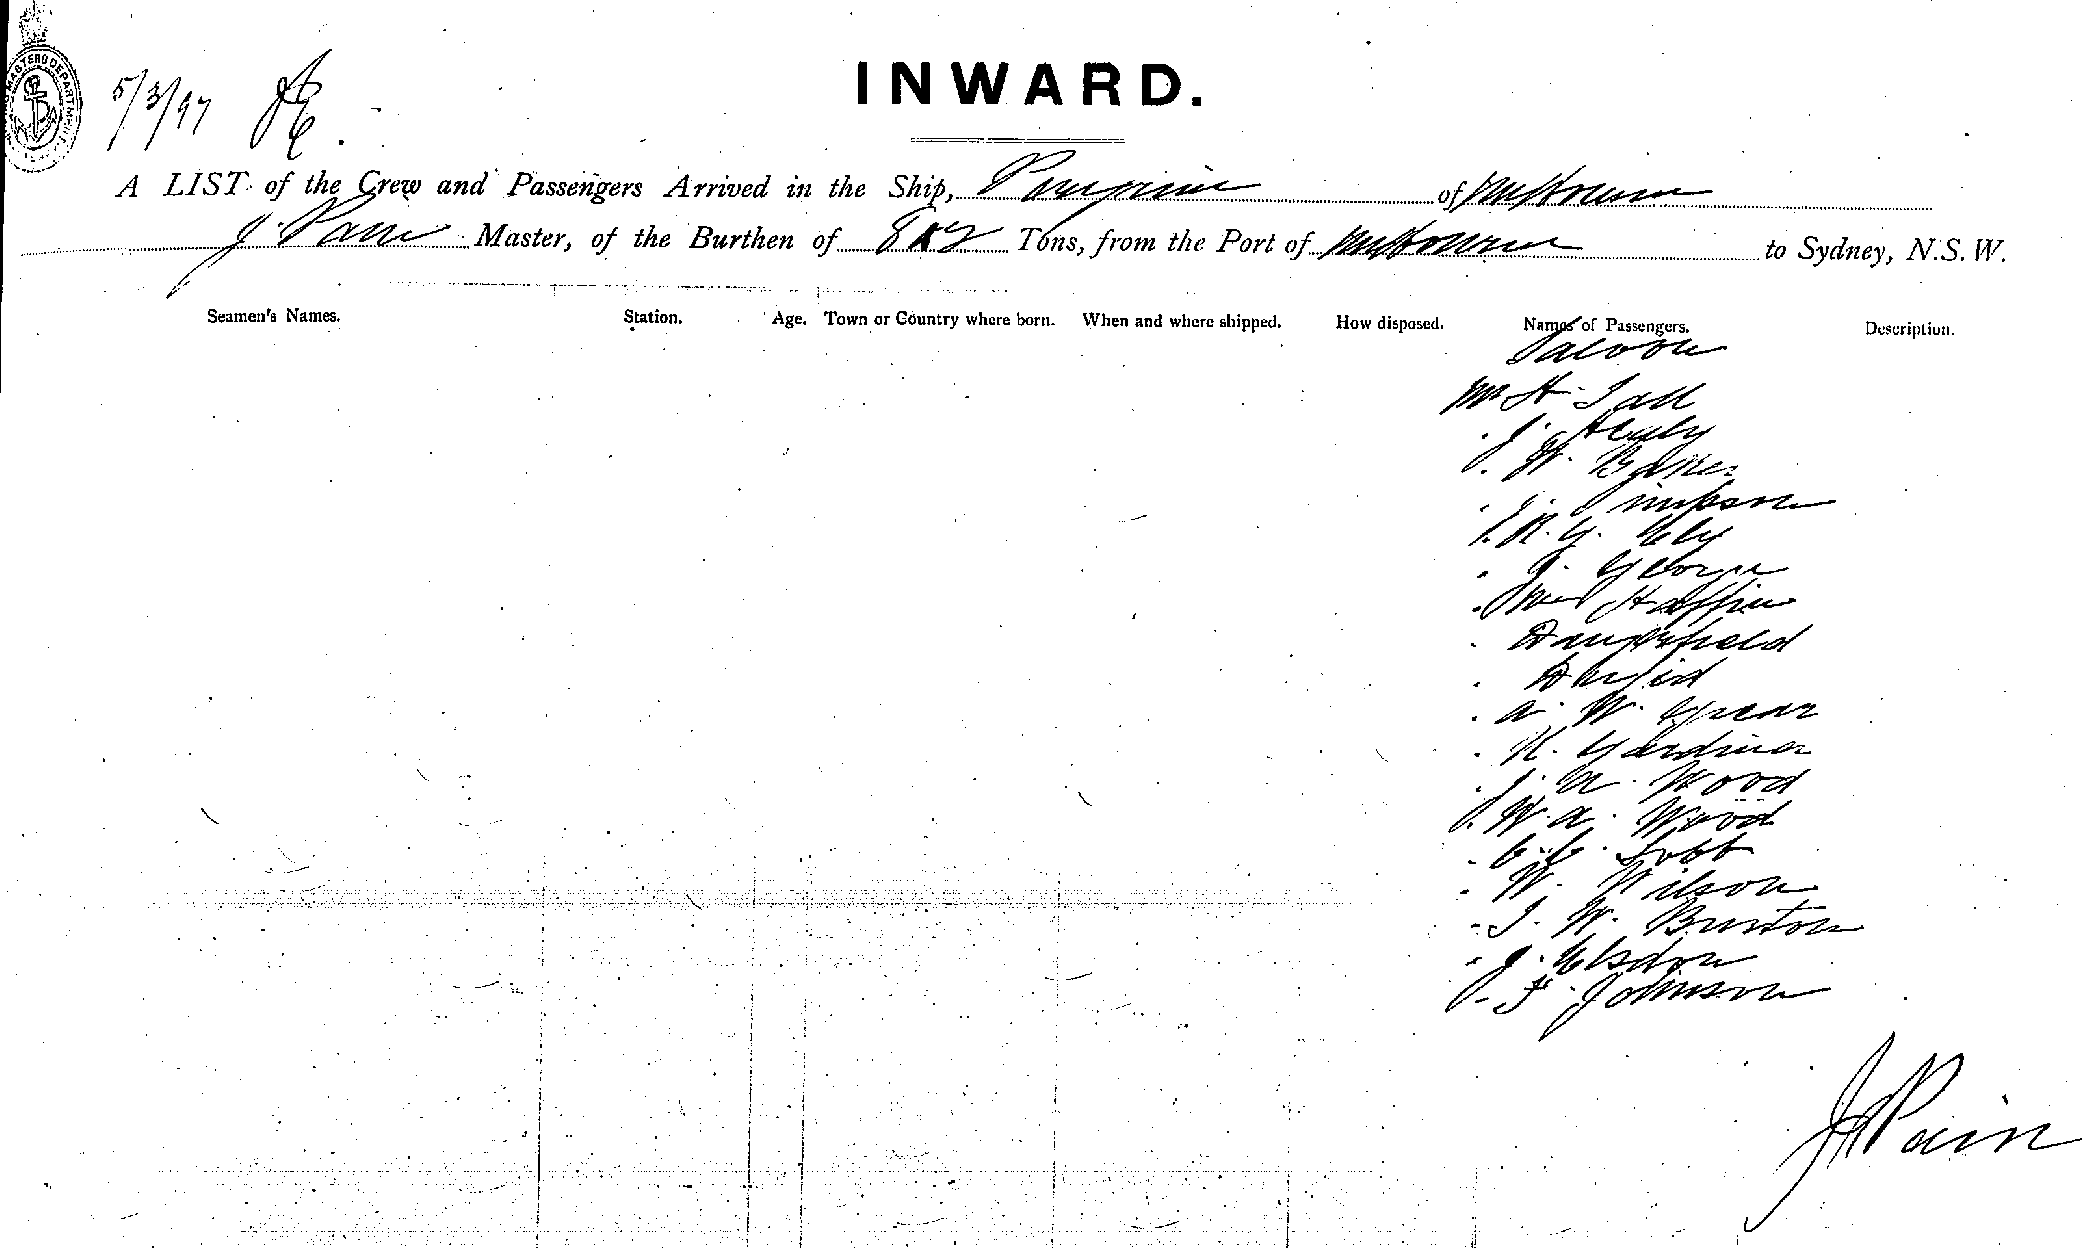 5/3/97
INWARD.
A LIST of the Crew and Passengers Arrived in the Ship, Peregrine of Melbourne
J. Pain Master, of the Burthen of Tons, from the Port of Melbourne to Sydney, N.S.W.
Seamen's Names. Station. Age. Town or Country where born. When and where shipped. How disposed. Names of Passengers. Description.
Saloon
Mr H. Tall
" J. Healy
" W. Baker
" J. Simpson
" R. G. Ely
" J. George
" Haffin
" Daugerfield
" A. W. Grear
" R. Gardiner
" J. N. Wood
" W. A. Wood
" C. C. Lobb
" W. Wilson
" T. W. Burton
" J. Elsdon
" F. Johnson
J Pain